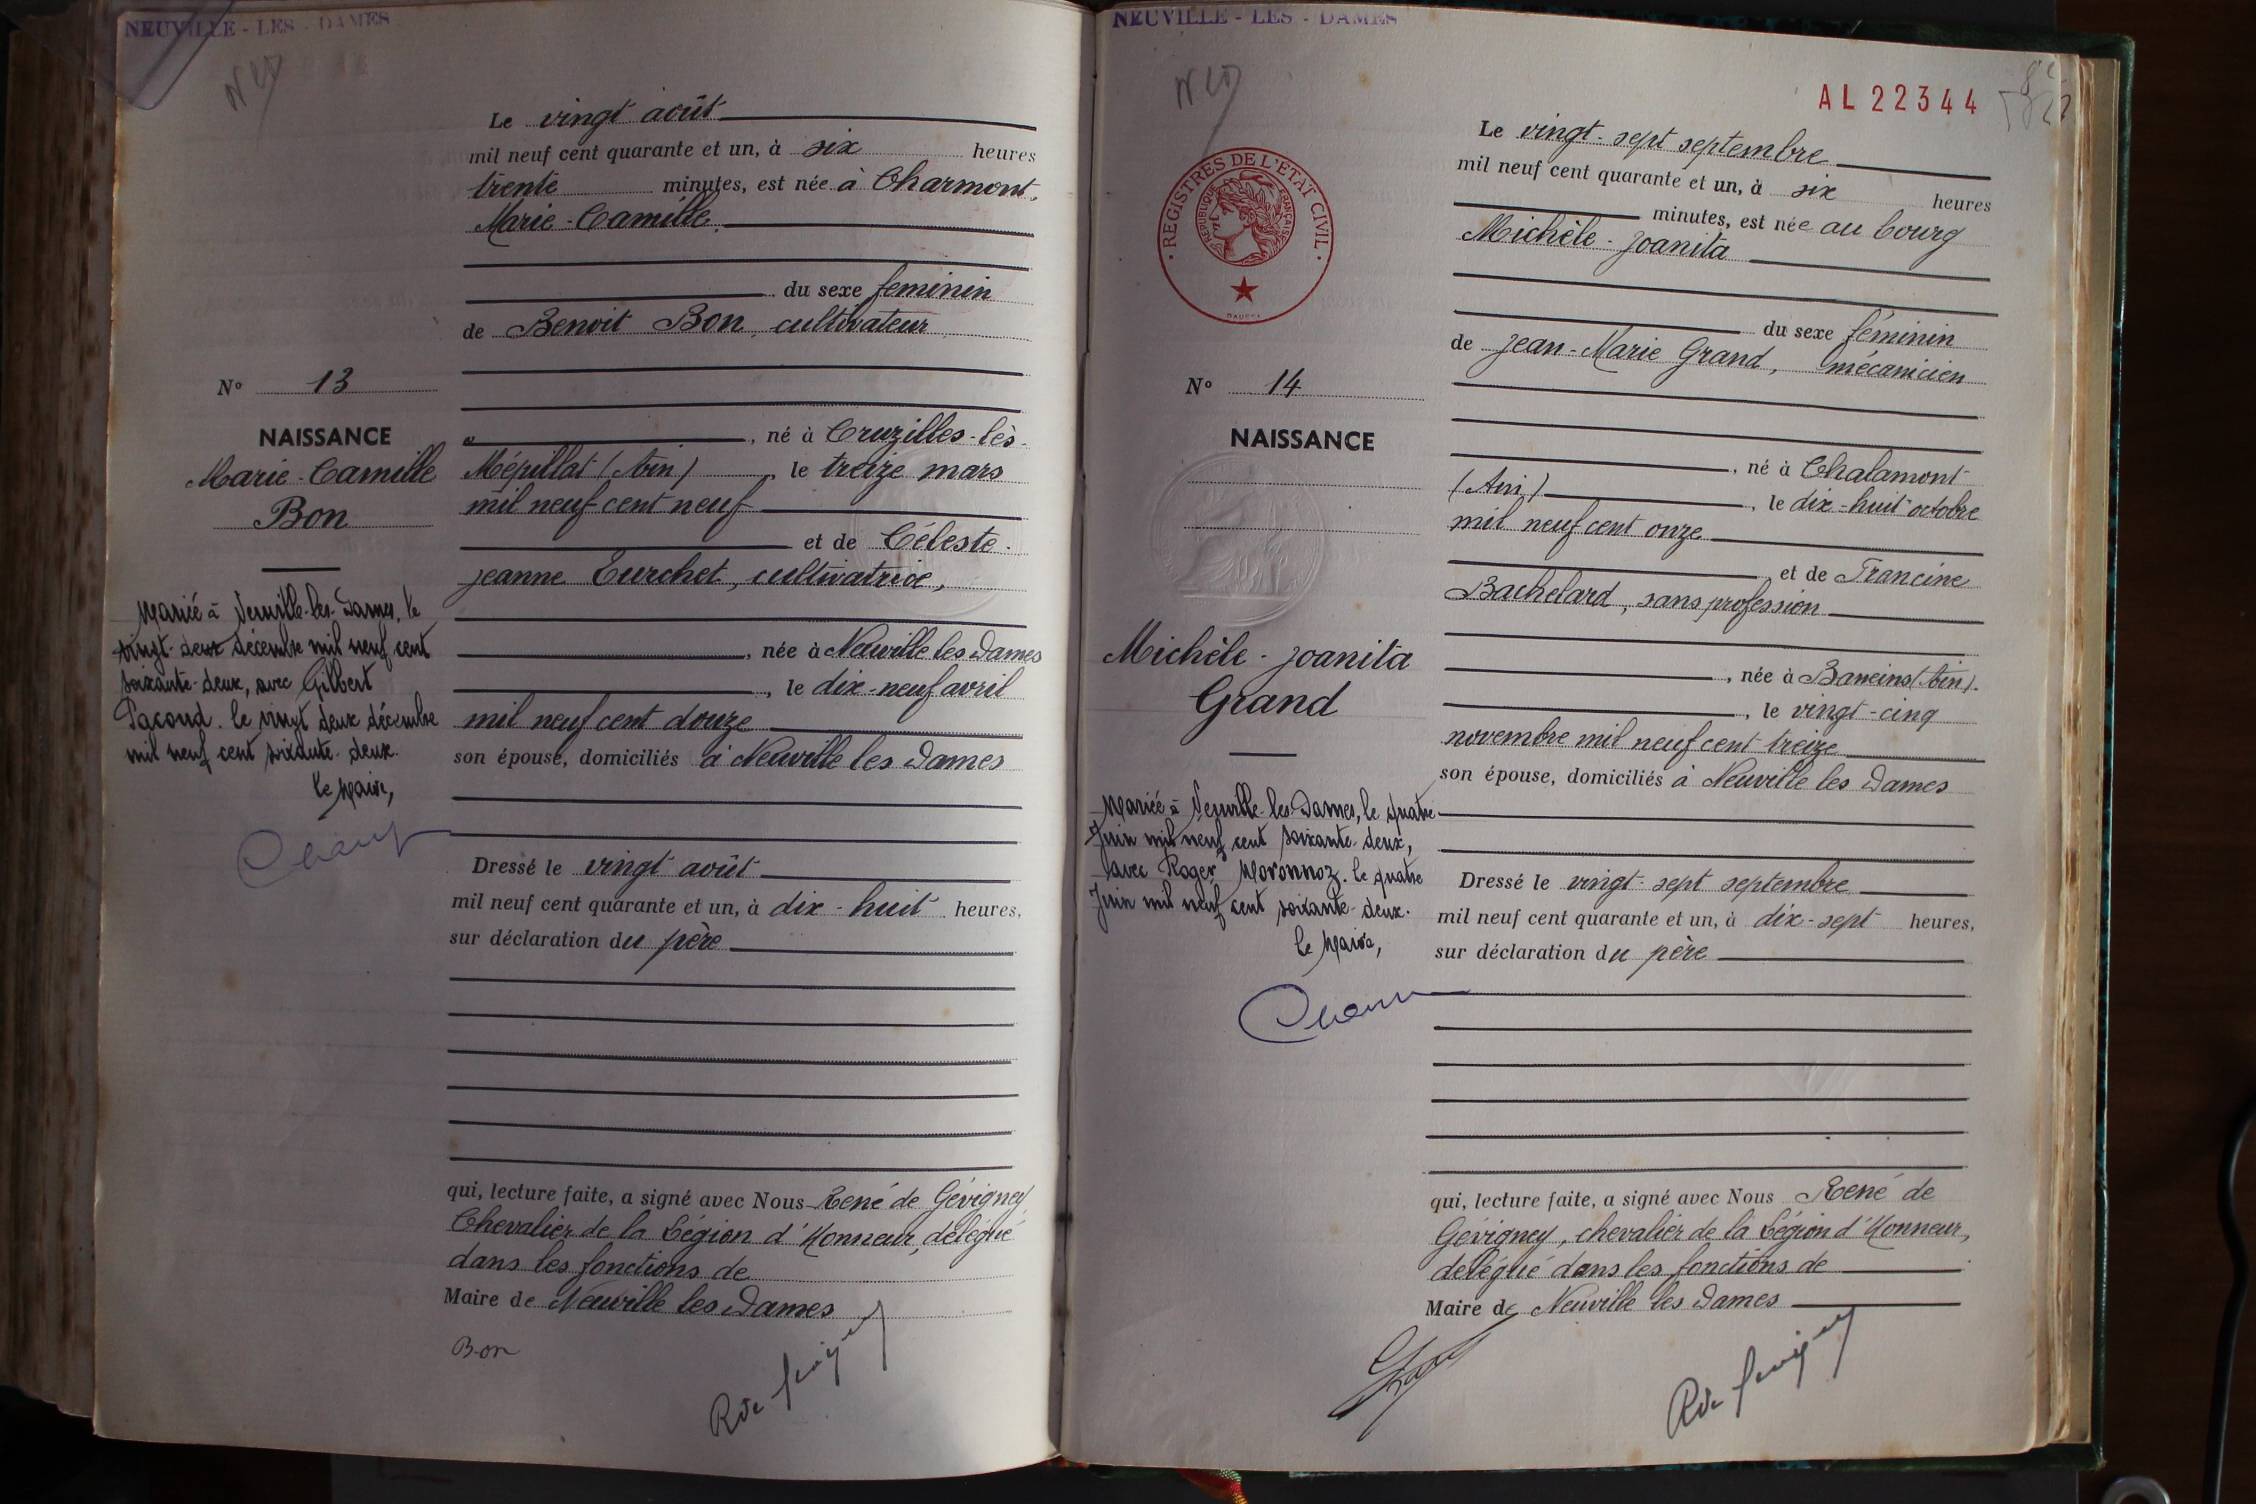 NEUVILLE - LES - DAMES
Le vingt août
mil neuf cent quarante et un, à six heures
trente minutes, est née à Charmont,
Marie-Camille
du sexe feminin
de Benoit Bon, cultivateur
N° 13
NAISSANCE
Marie-Camille
Bon
né à Cruzilles-lès-
Mépillat (Ain), le treize mars
mil neuf cent neuf
et de Céleste-
Jeanne Eurchet, cultivatrice,
née à Neuville les Dames
, le dix-neuf avril
mil neuf cent douze
son épouse, domiciliés à Neuville les Dames
Mariée à Neuville-les-Dames, le
vingt-deux décembre mil neuf cent
soixante-deux, avec Gilbert
Pacoud. le vingt deux décembre
mil neuf cent soixante-deux.
le Maire,
Dressé le vingt août
mil neuf cent quarante et un, à dix-huit heures,
sur déclaration du père
qui, lecture faite, a signé avec Nous René de Gévigney
Chevalier de la Légion d'Honneur, délégué
dans les fonctions de
Maire de Neuville les Dames
Bon
NEUVILLE - LES - DAMES
AL 22344
REGISTRES DE L'ÉTAT CIVIL
RÉPUBLIQUE FRANÇAISE
Le vingt-sept septembre
mil neuf cent quarante et un, à six heures
minutes, est née au bourg
Michèle-Joanita
du sexe féminin
de Jean-Marie Grand, mécanicien
N° 14
NAISSANCE
Michèle-Joanita
Grand
, né à Chalamont
(Ain), le dix-huit octobre
mil neuf cent onze
et de Francine
Bachelard, sans profession
, née à Baneins (Ain).
, le vingt-cinq
novembre mil neuf cent treize
son épouse, domiciliés à Neuville les Dames
Mariée à Neuville-les-Dames, le quatre
Juin mil neuf cent soixante-deux,
avec Roger Moronnoz. le quatre
Juin mil neuf cent soixante-deux.
le Maire,
Dressé le vingt-sept septembre
mil neuf cent quarante et un, à dix-sept heures,
sur déclaration du père
qui, lecture faite, a signé avec Nous René de
Gévigney, chevalier de la Légion d'Honneur,
délégué dans les fonctions de
Maire de Neuville les Dames